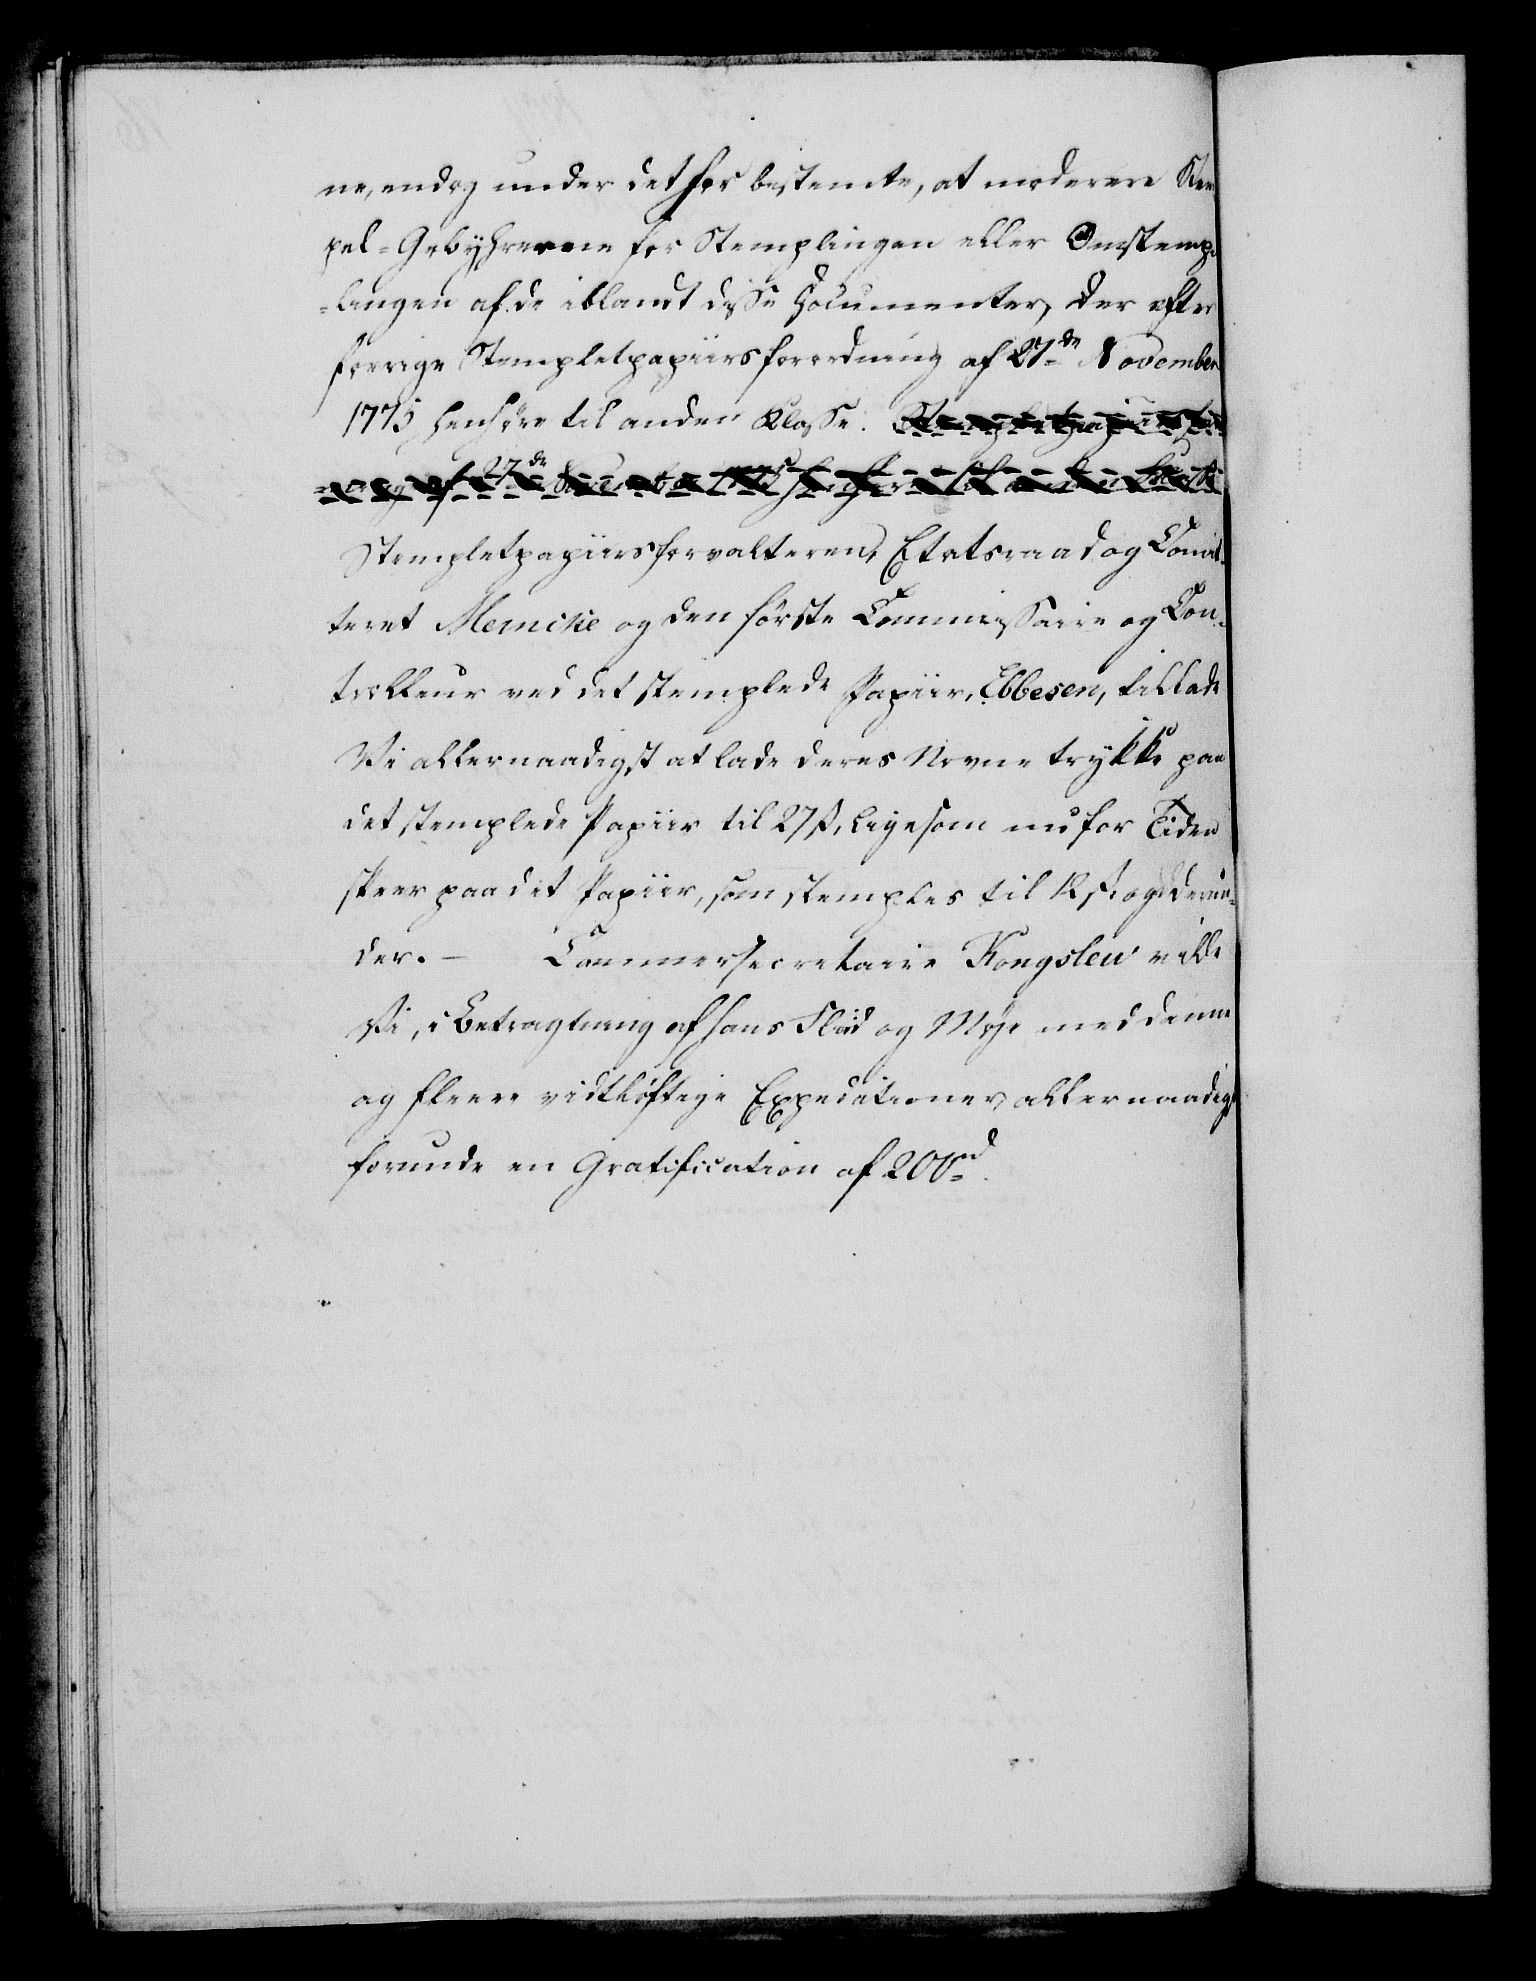 ne, endog under det her bestemte, at moderere Stem
pel-Gebyhrerne for Stemplingen eller Omstemp-
-lingen af de iblandt disse Documenter, der efter
forrige Stempletpapiirsforordning af 27de November
1775 henhøre til anden Klasse. Stempletpapiirsfor
af 27de November 1775 henhøre til anden Klasse
Stempletpapiirsforvalteren, Etatsraad og Commit-
teret Mencke og den første Commissaire og Con-
trolleur ved det stemplede Papiir, Ebbesen, tillade
Vi allernaadigst at lade deres Navne trykke paa
det stemplede Papiir til 27 ß, ligesom nu for Tiden
skeer paa det Papiir, som stemples til 12 ß. og derun-
der. – Cammersecretaire Kongslew ville
Vi, i Betragtning af hans Fliid og Møje med denne
og fleere vidtløftige Expeditioner, allernaadigst
forunde en Gratification af 200rd.